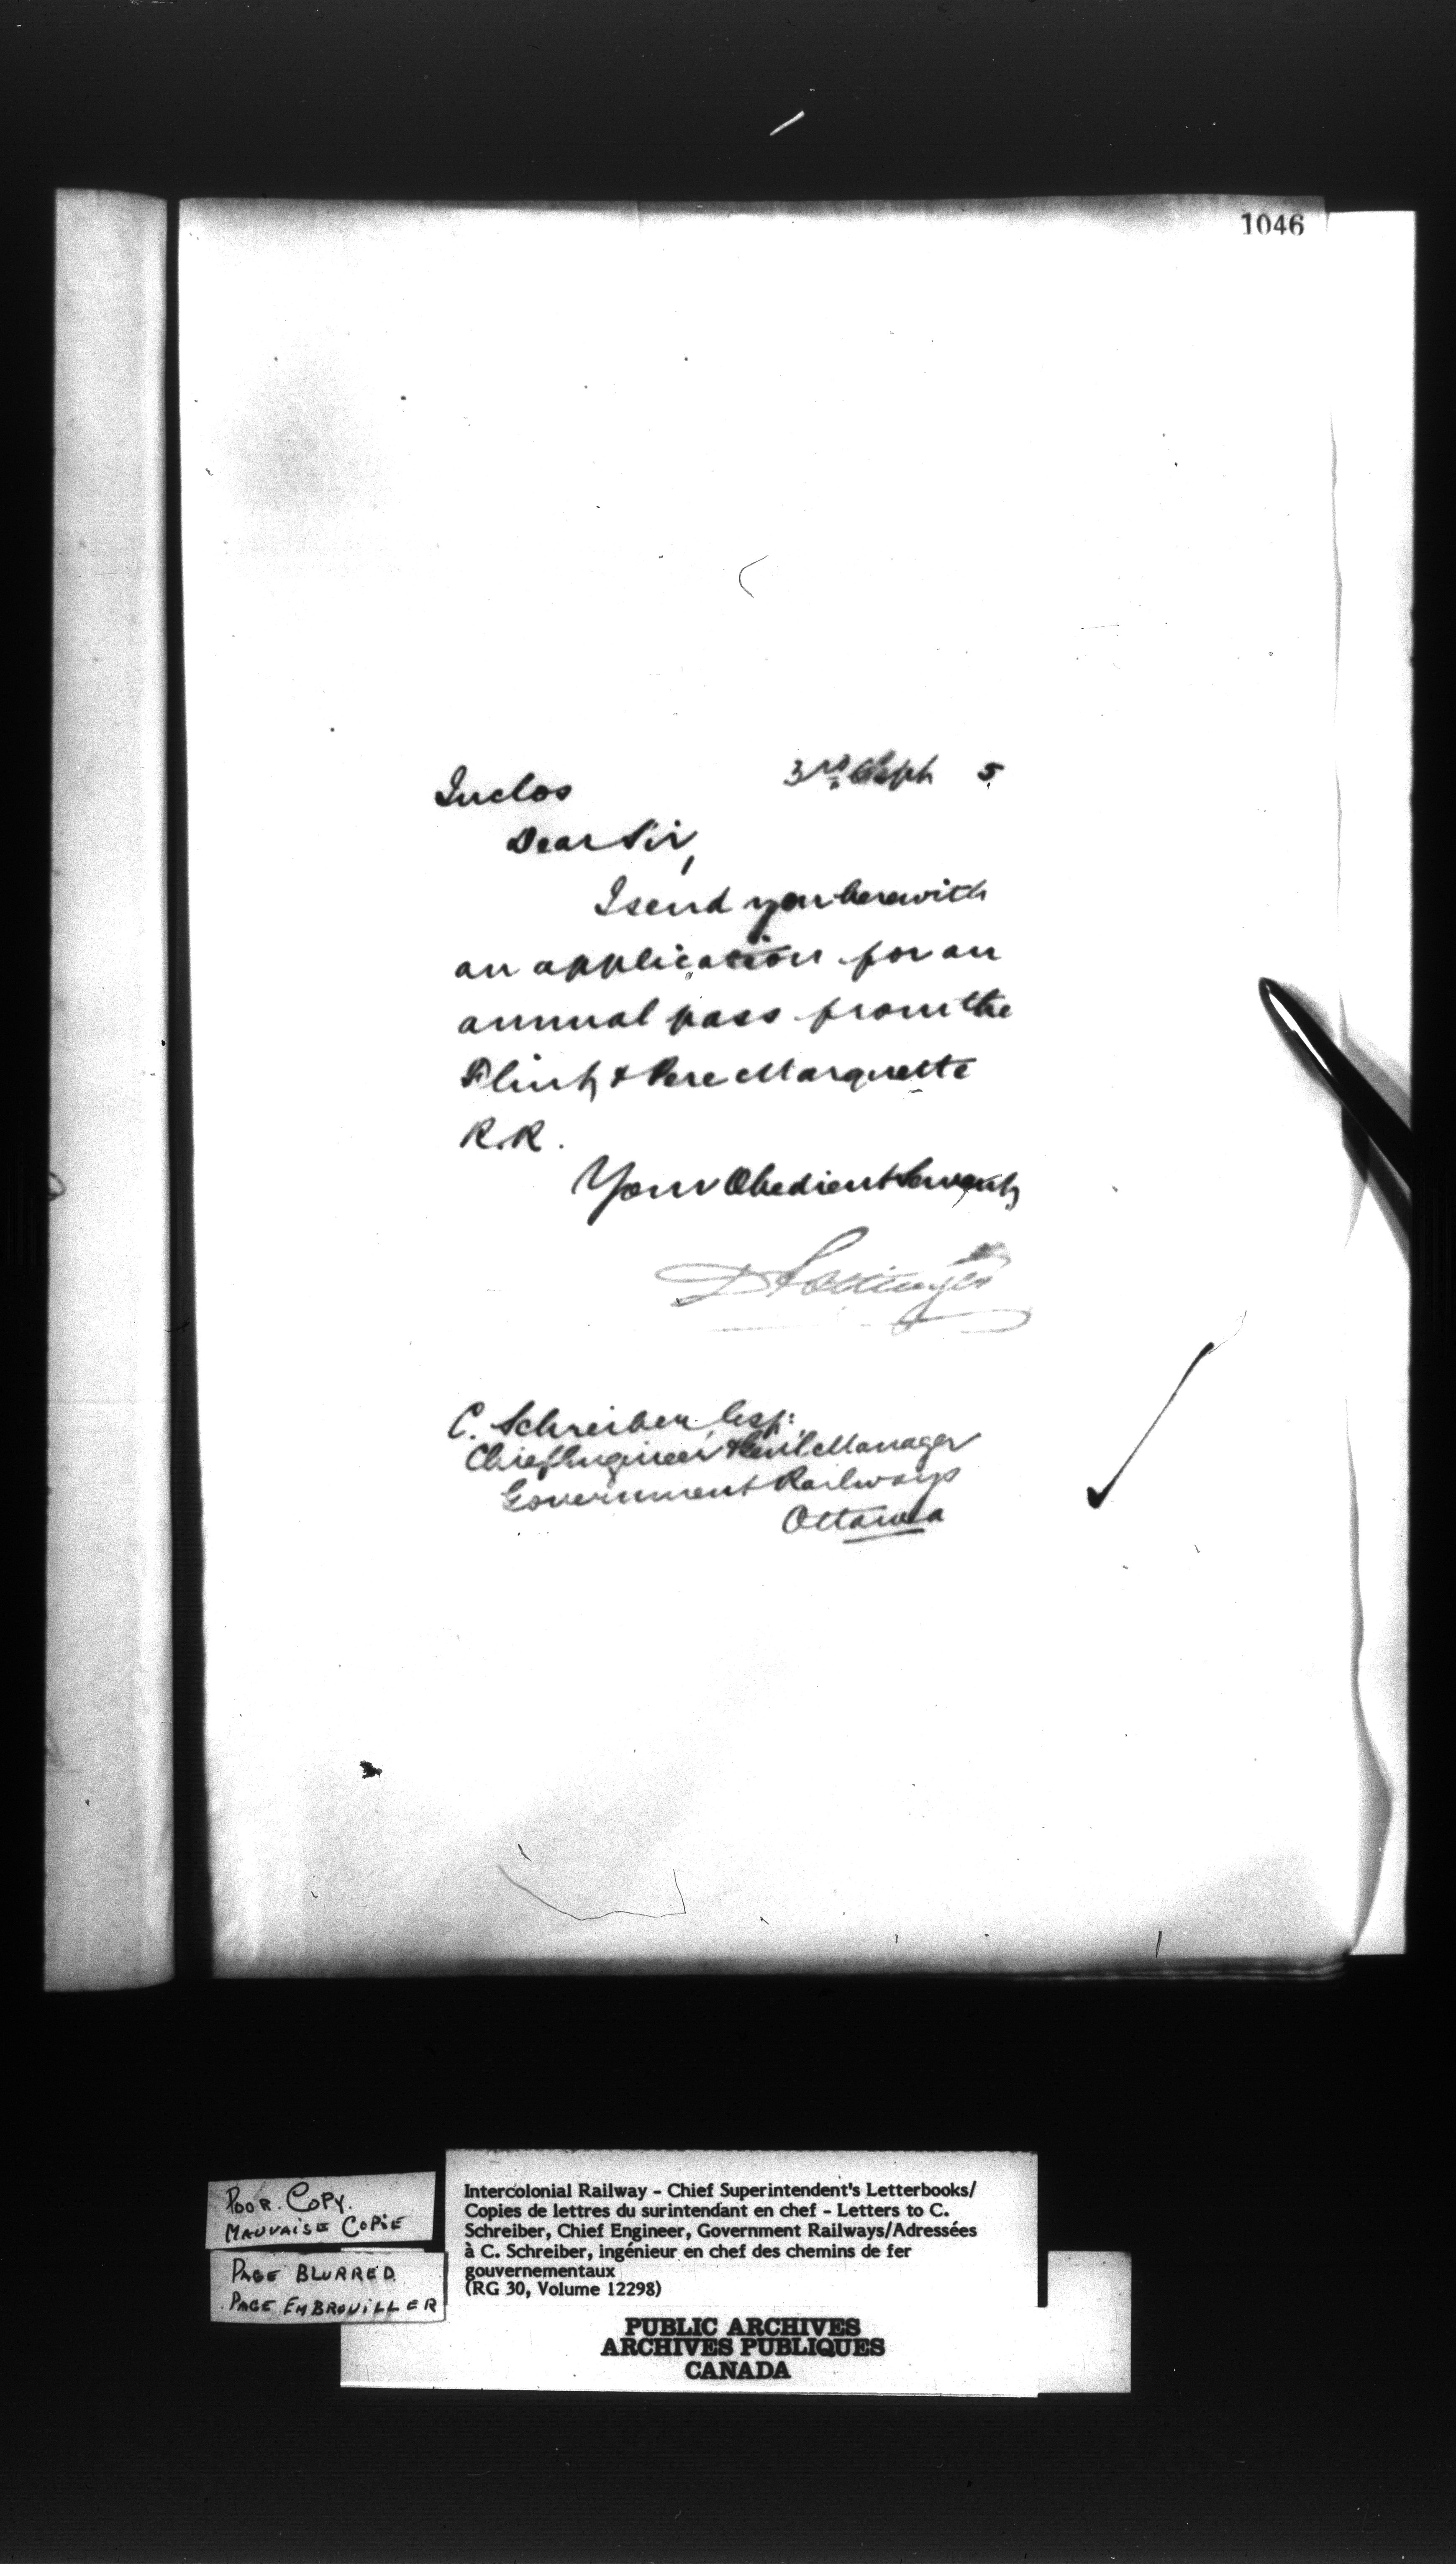 1046
Inclos 3rd Sept 5
Dear Sir,
I send you herewith
an application for an
annual pass from the
Flint & Pere Marquette
R.R.
Your Obedient Servant,
D Pottinger
C. Schreiber, Esq:
Chief Engineer & Genl Manager
Government Railways
Ottawa
POOR COPY.
MAUVAISE COPIE
PAGE BLURRED
PAGE EMBROUILLER
Intercolonial Railway - Chief Superintendent's Letterbooks/
Copies de lettres du surintendant en chef - Letters to C.
Schreiber, Chief Engineer, Government Railways/Adressées
à C. Schreiber, ingénieur en chef des chemins de fer
gouvernementaux
(RG 30, Volume 12298)
PUBLIC ARCHIVES
ARCHIVES PUBLIQUES
CANADA